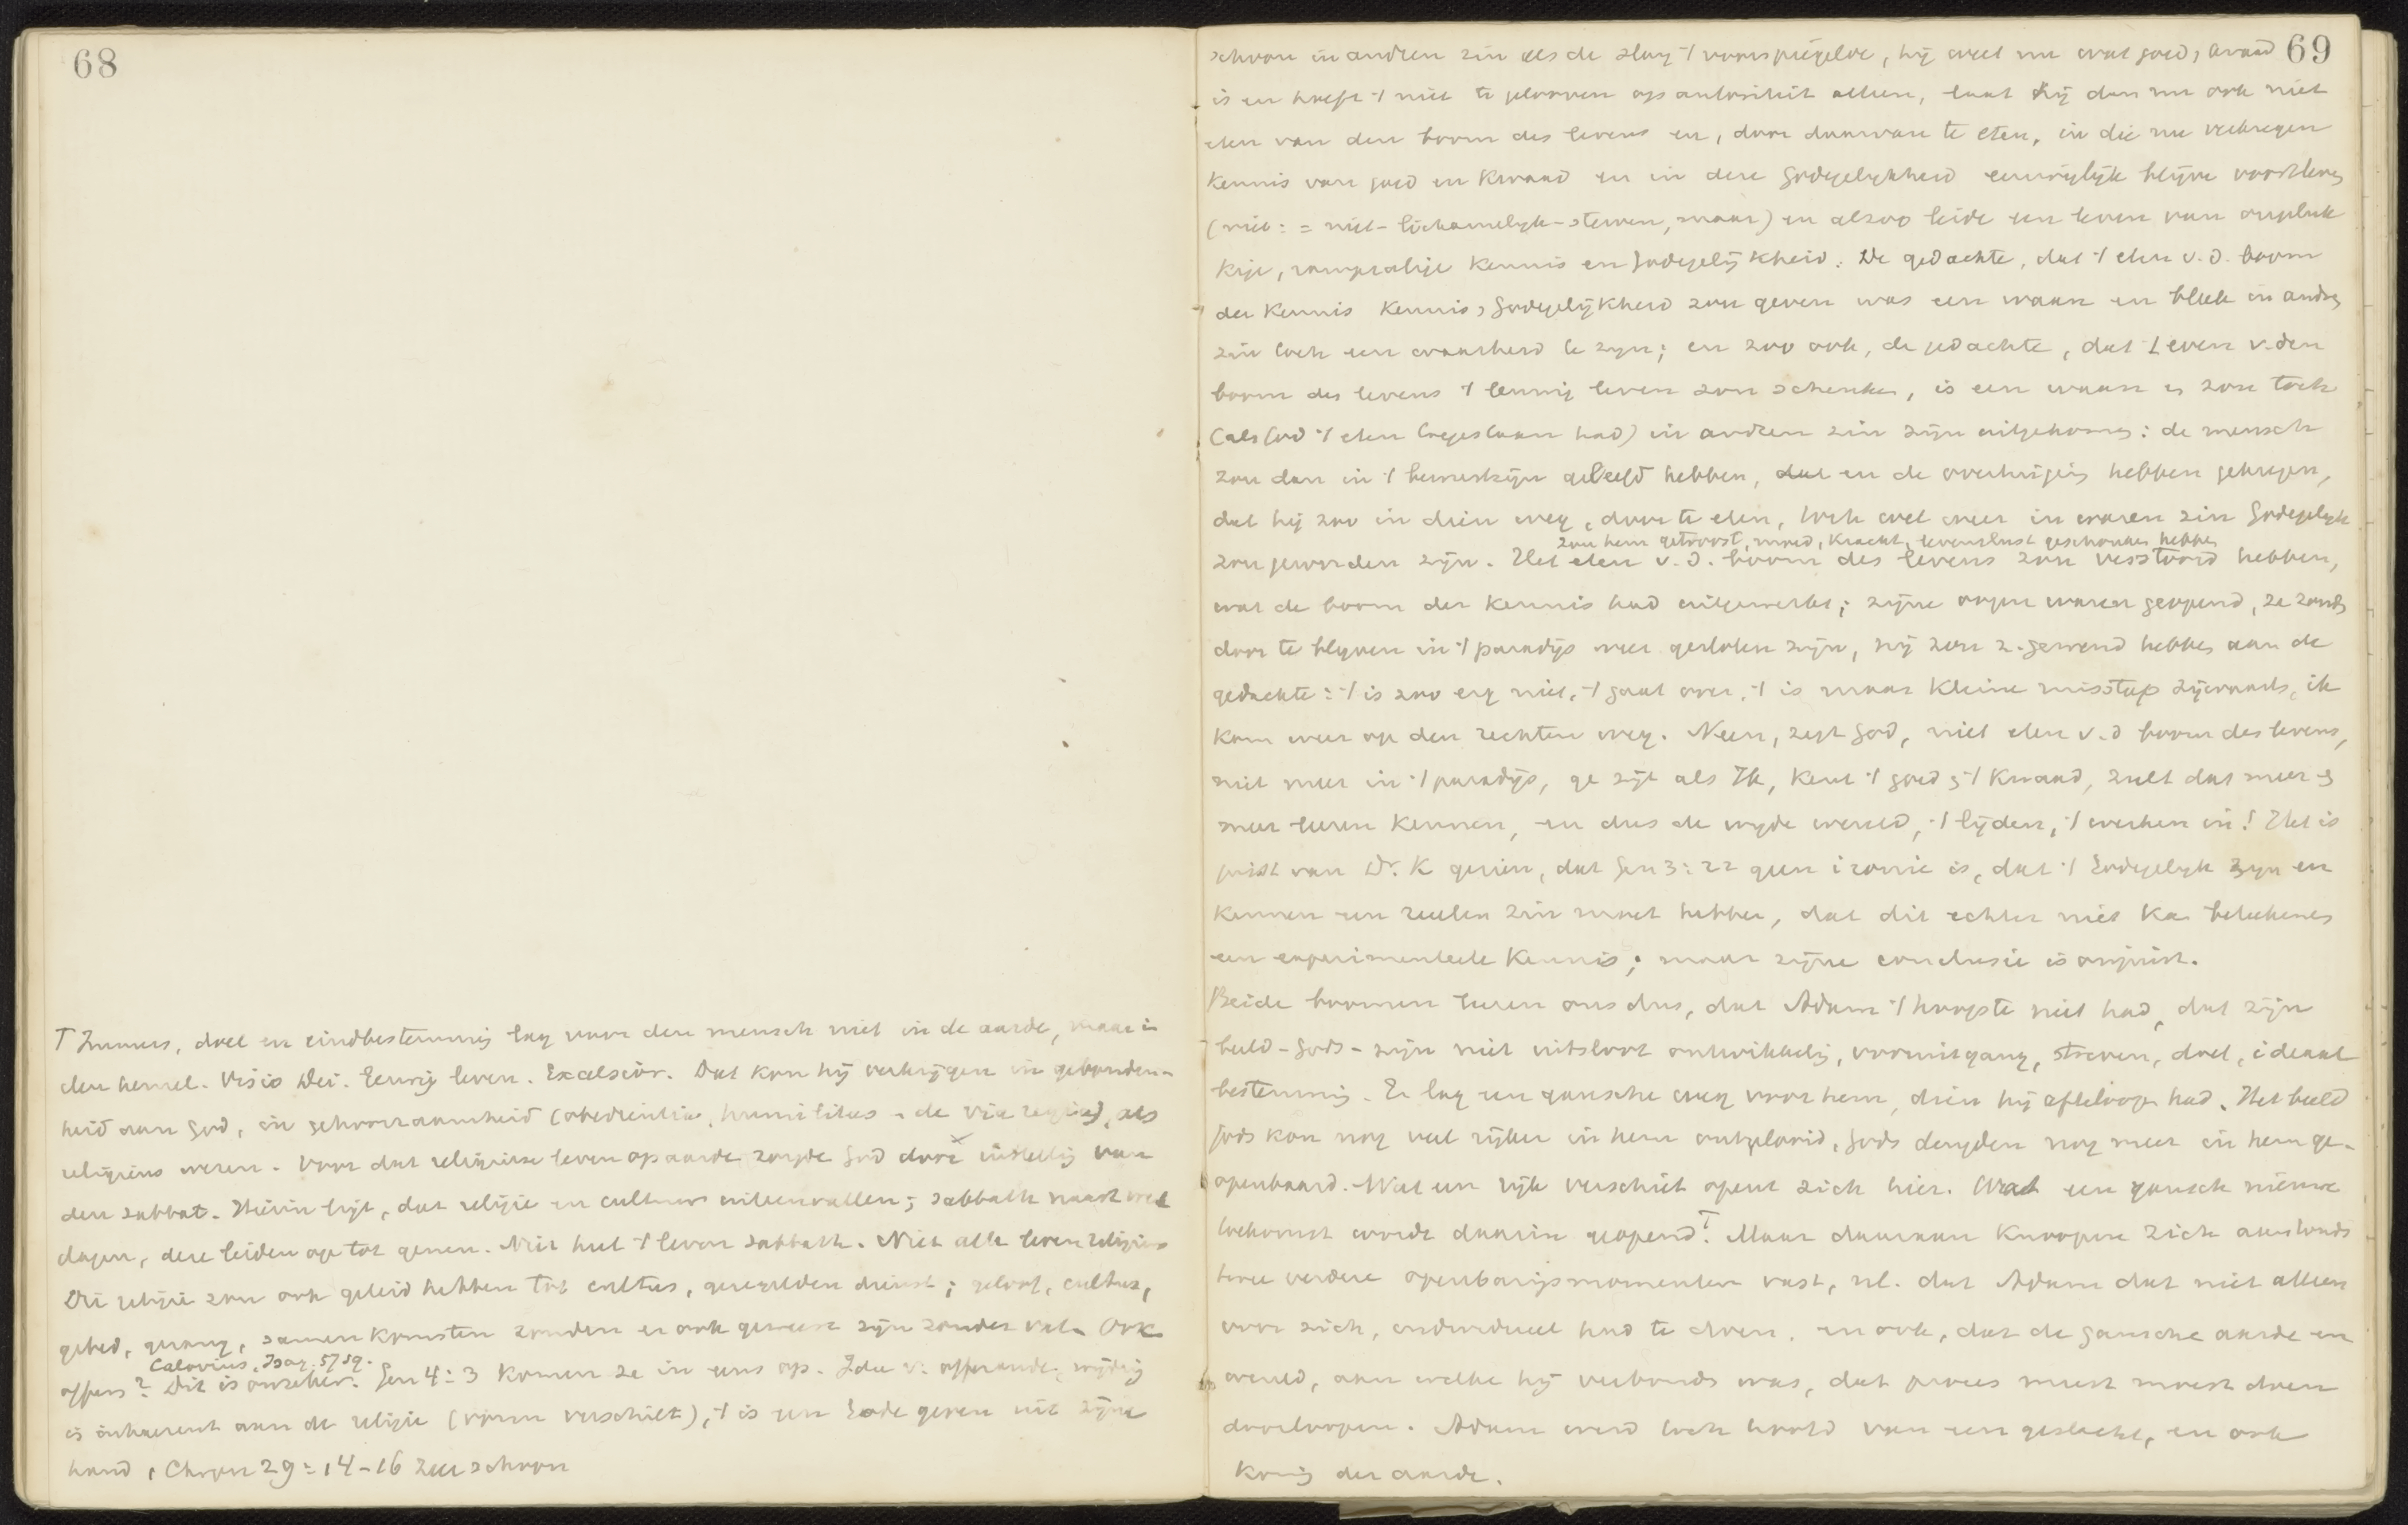 68
⊤ Immers, doel en eindbestemming lag voor den mensch niet in de aarde, maar in
den hemel. Visio Dei. Eeuwig leven. Excelsior. Dat kon hij verkrijgen in gebonden-
heid aan God, in gehoorzaamheid (obedientia, humilitas - de via regia), als
religieus wezen. Voor dat religieuse leven op aarde zorgde God door instelling van
den sabbat. Hierin ligt, dat religie en cultuur uiteenvallen; sabbath naast
dagen, deze leiden op tot genen. Niet heel 't leven sabbath. Niet alle leven religieus
Die religie zou ook geleid hebben tot cultus, geregelden dienst; geloof, cultus,
gebed, gezang, samenkomsten zouden er ook geweest zijn zonder val. Ook
Calovius, Isag. 57 sq.
offers? Dit is onzeker. Gen 4:3 komen ze in eens op. Idee v. offerande, wijding
is inhaerent aan de religie (vorm verschilt), 't is een Gode geven uit zijne
hand, 1 Chron 29:14-16 zeer schoon
69
schoon in andren zin als de slang 't voorspiegelde, hij weet nu wat goed, kwaad
is en hoeft 't niet te gelooven op autoriteit alleen, laat hij dan nu ook niet
eten van den boom des levens en, door daarvan te eten, in die nu verkregen
kennis van goed en kwaad en in deze Godegelykheid eeuwiglyk blijve voortleven
(niet: = niet-lichamelyk-sterven, maar) en alzoo leide een leven van ongeluk
kige, rampzalige kennis en Godegelijkheid. De gedachte, dat 't eten v.d. boom
der kennis kennis, Godegelijkheid zou geven was een waan en bleek in andren
zin toch een waarheid te zyn; en zoo ook, de gedachte, dat 't eten v. den
boom des levens 't eeuwig leven zou schenken, is een waan en zou toch
(als God 't eten toegestaan had) in andren zin zijn uitgekomen: de mensch
zou dan in 't bewustzijn geleefd hebben, dat en de overtuiging hebben gekregen,
dat hij zoo in dien weg, door te eten, toch wel weer in waren zin Godegelyk
zou hem getroost, moed, kracht, levenslust geschonken hebben
zou geworden zijn. Het eten v.d. boom des levens zou verstoord hebben,
wat de boom der kennis had uitgewerkt; zijne oogen waren geopend, ze zouden
door te blyven in 't paradijs weer gesloten zijn, hij zou z. gewend hebben aan de
gedachte: 't is zoo erg niet, 't gaat over, 't is maar kleine misstap zijwaarts, ik
kom weer op den rechten weg. Neen, zegt God, niet eten v.d boom des levens,
niet meer in 't paradijs, ge zijt als Ik, kent 't goed en 't kwaad, zult dat meer en
meer leeren kennen, en dus de wyde wereld, 't lijden, 't werken in! Het is
juist van Dr. K gezien, dat Gen 3:22 geen ironie is, dat 't Godegelyk zyn en
kennen een reëelen zin moet hebben, dat dit echter niet kan beteekenen
een experimenteele kennis; maar zijne conclusie is onjuist.
Beide boomen leeren ons dus, dat Adam 't hoogste niet had, dat zijn
beeld-Gods-zijn niet uitsloot ontwikkeling, vooruitgang, streven, doel, ideaal
bestemming. Er lag een gansche weg voor hem, dien hij afteloopen had. Het beeld
Gods kon nog veel rijker in hem ontplooid, Gods deugden nog meer in hem ge-
openbaard. Wat een rijk verschiet opent zich hier. Wat een gansch nieuwe
toekomst wordt daarin geopend⊤. Maar daaraan knoopen zich aanstonds
twee verdere openbaringsmomenten vast, nl. dat Adam dat niet alleen
voor zich, individueel had te doen, en ook, dat de gansche aarde en
wereld, aan welke hij verbonden was, dat proces moest doen
doorloopen. Adam werd toch hoofd van een geslacht, en ook
Koning der aarde.